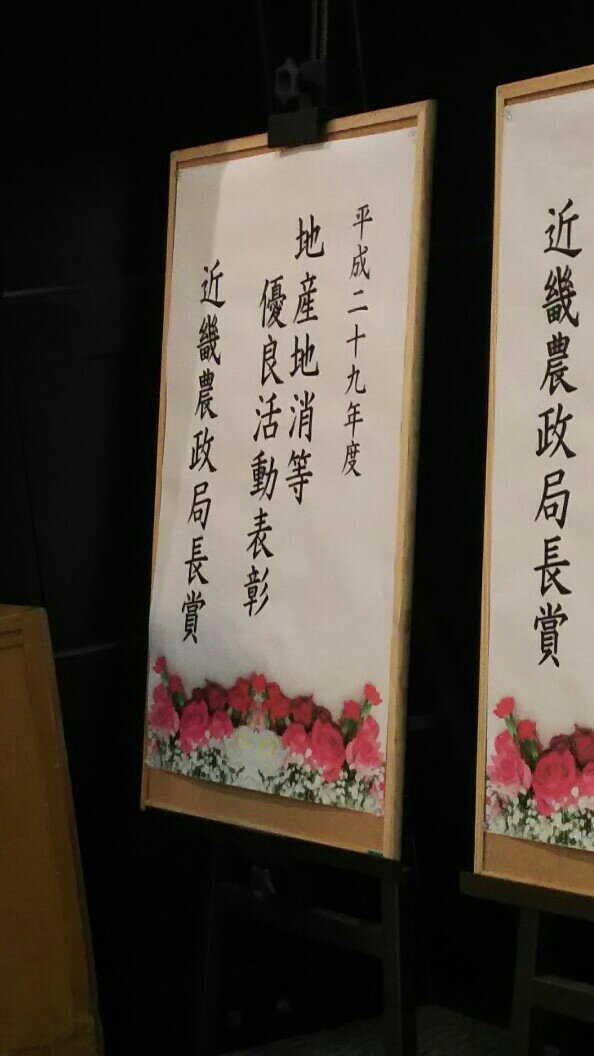 平成二十九年度
地産地消等
優良活動表彰
近畿農政局長賞
近畿農政局長賞